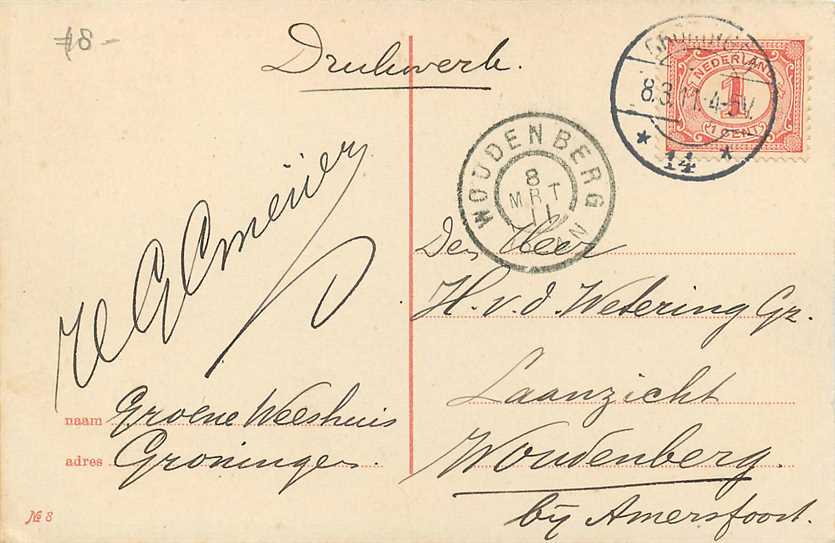 18 -
Drukwerk.
GRONING
NEDERLAND
8.3.11. 4-5V.
1
1 CENT
14
WOUDENBERG
8
MRT
11
Den Heer
H. v. d. Wetering Gz.
Laanzicht
Woudenberg.
bij Amersfoort.
naam Groene Weeshuis
adres Groningen.
№ 8